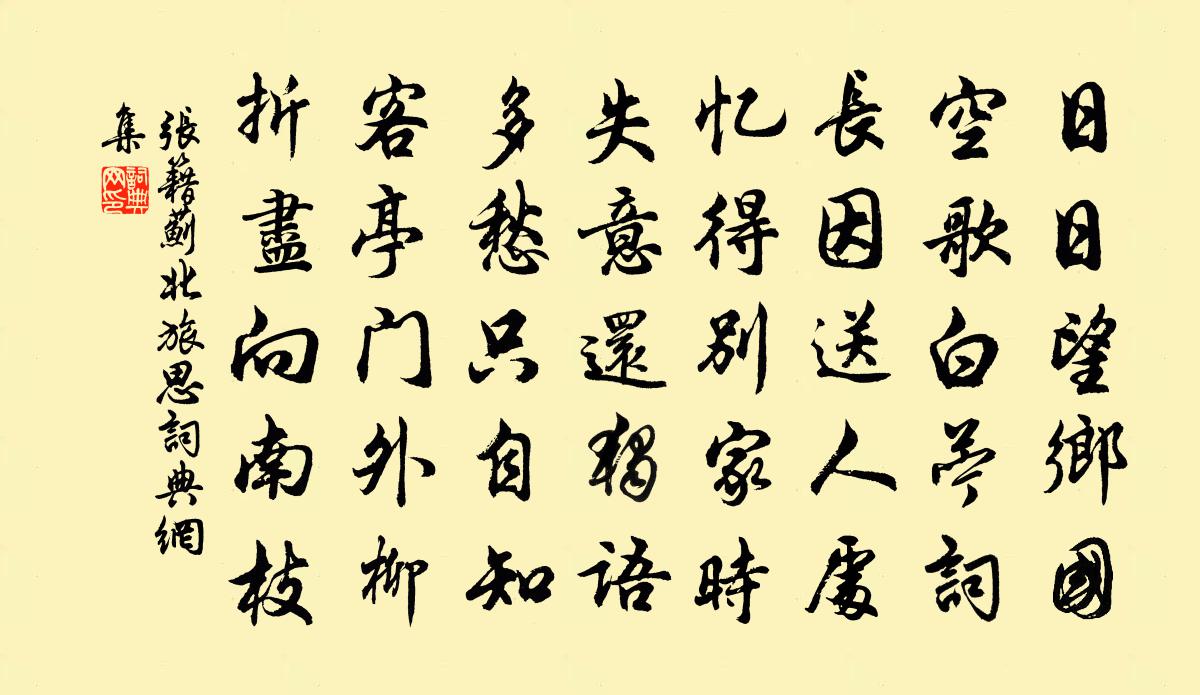 日日望鄉國
空歌白苧詞
長因送人處
忆得别家時
失意還獨語
多愁只自知
客亭门外柳
折盡向南枝
張籍薊北旅思詞典網
集
詞典
网印